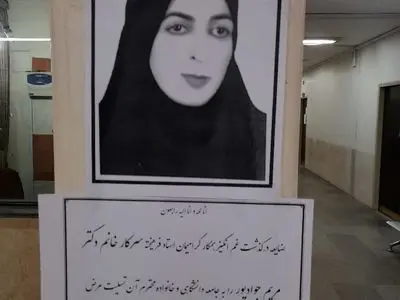 انا لله و انا الیه راجعون
ضایعه درگذشت غم انگیز همکار گرامیمان استاد فرهیخته سرکار خانم دکتر
مریم جوادپور را به جامعه دانشگاهی و خانواده محترم آن تسلیت عرض